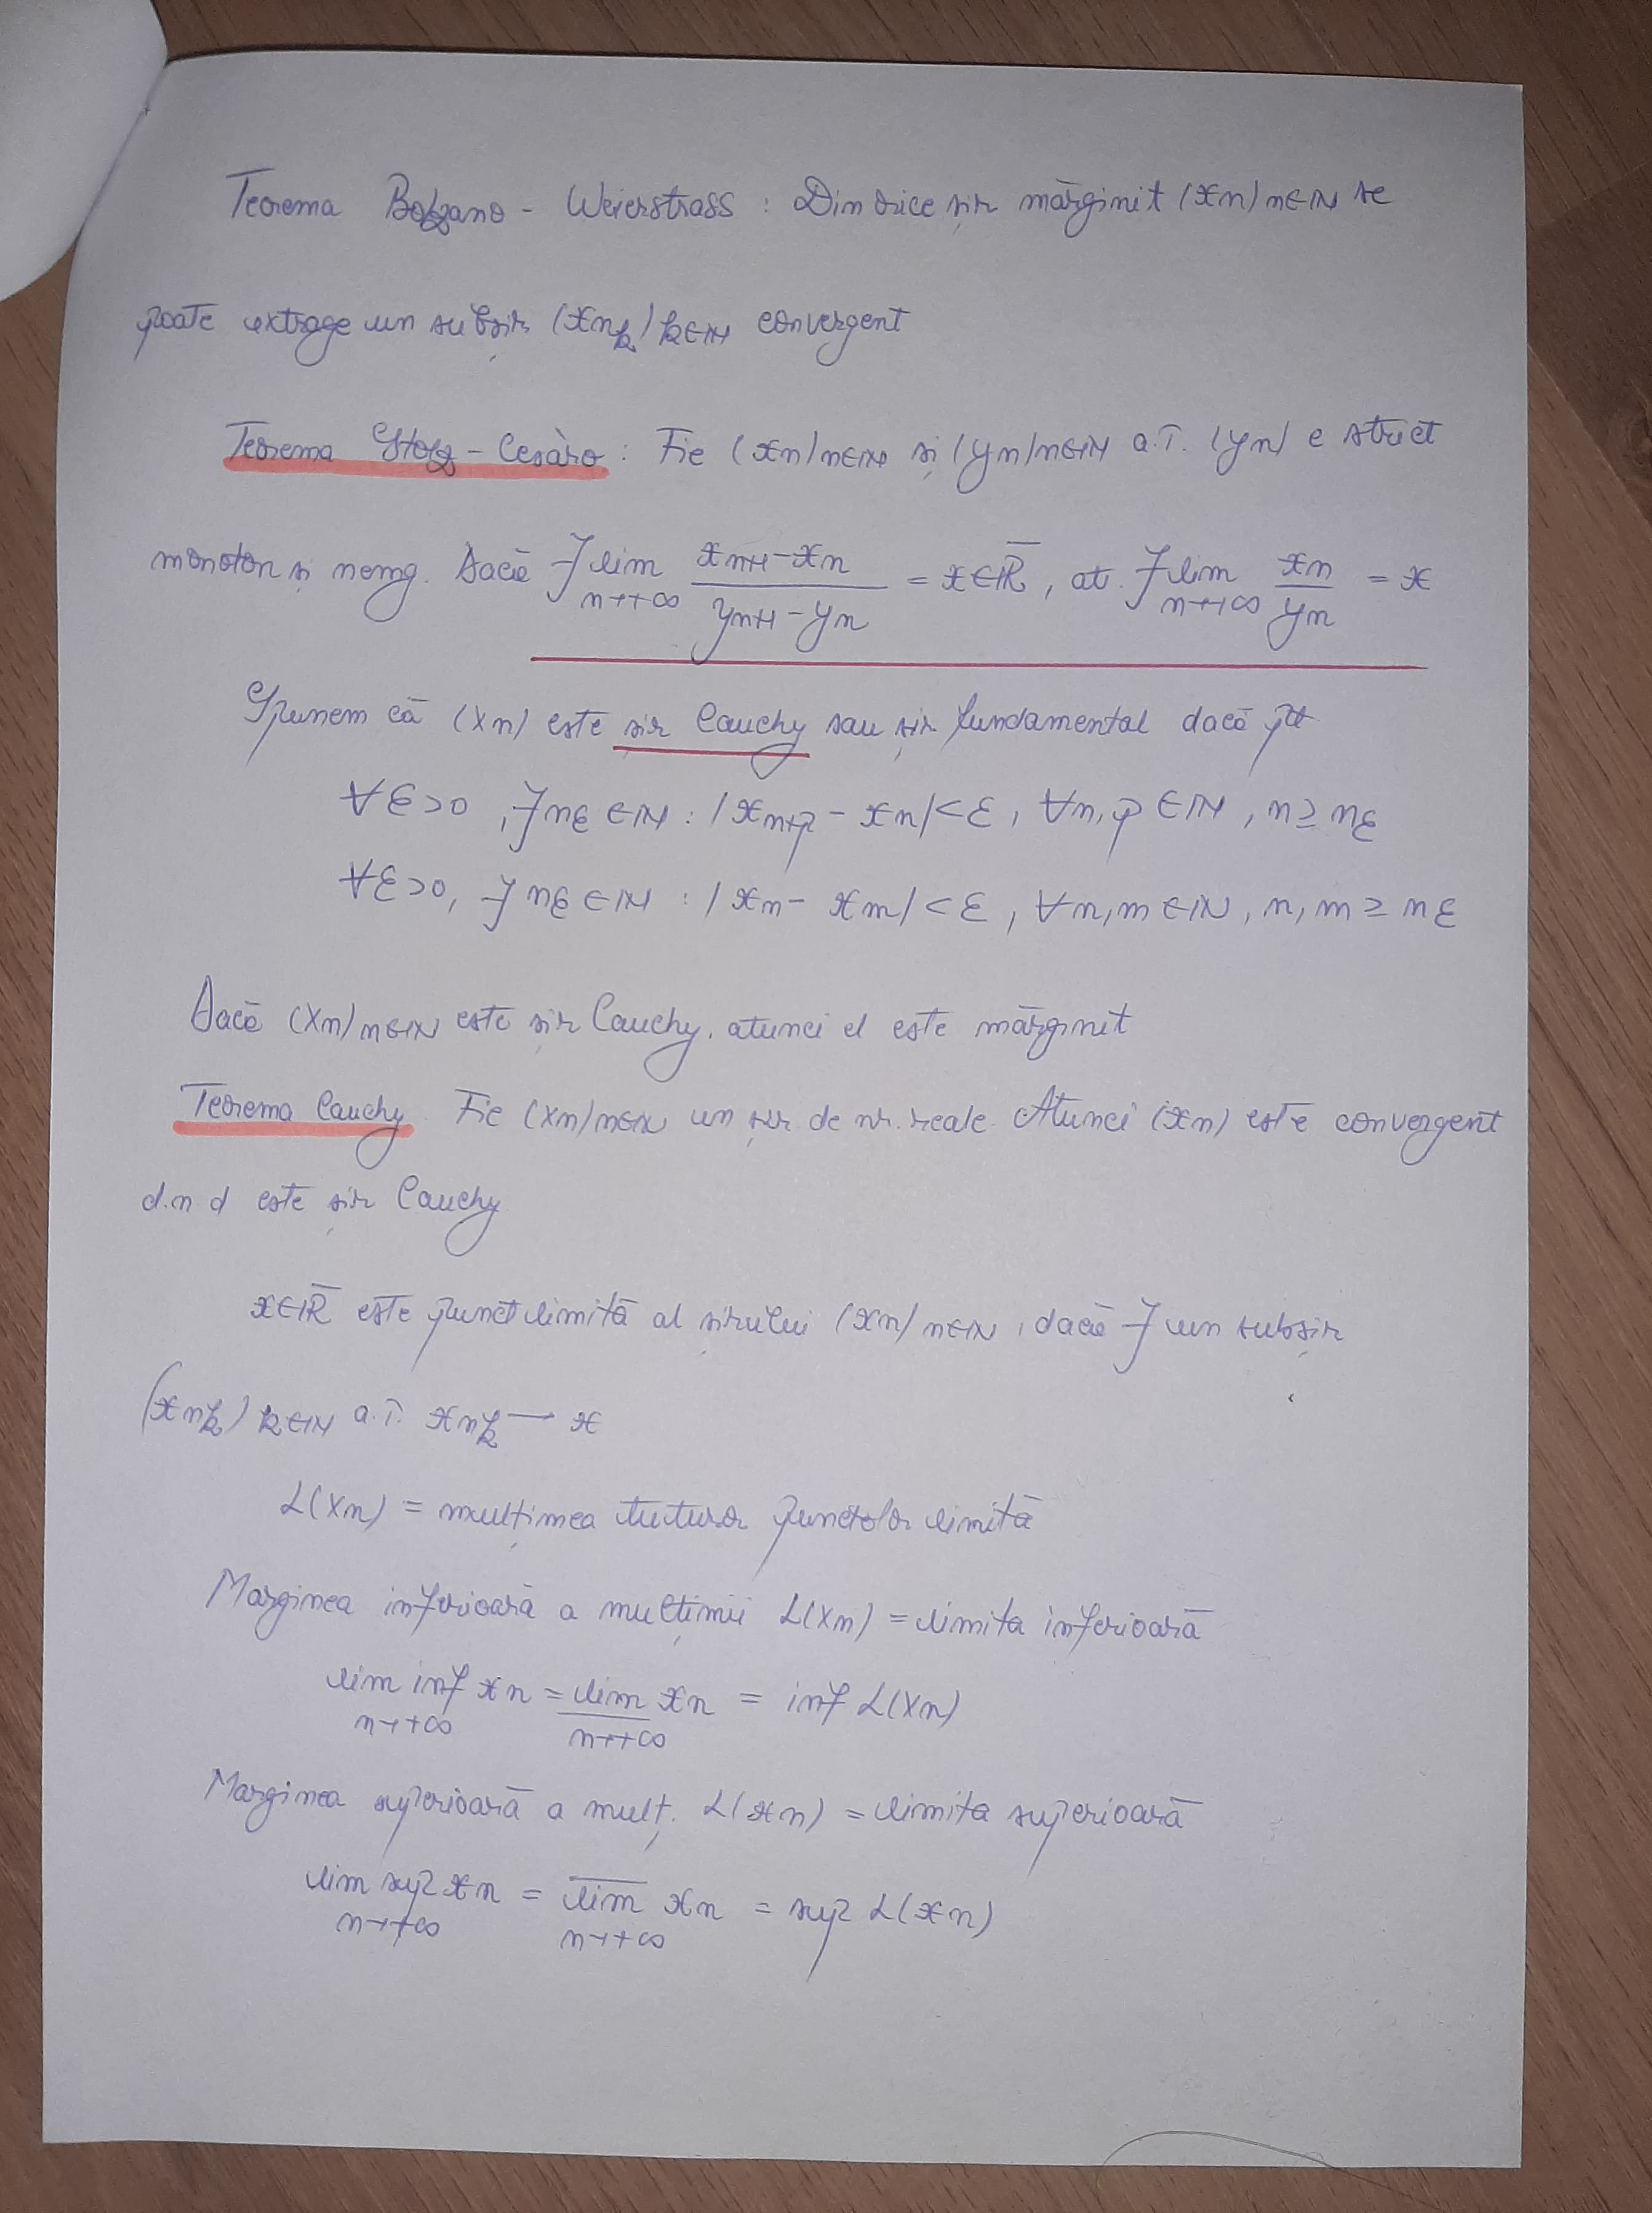 Teorema Bolzano - Weierstrass : Din orice șir mărginit (xn)n∈ℕ se
poate extrage un subșir (xnk)k∈ℕ convergent
Teorema Stolz - Cesàro : Fie (xn)n∈ℕ și (yn)n∈ℕ a.î. (yn) e strict
monoton și nemg. Dacă ∃ lim n→+∞ (xn+1 - xn)/(yn+1 - yn) = x∈ℝ̅, at. ∃ lim n→+∞ xn/yn = x
Spunem că (xn) este șir Cauchy sau șir fundamental dacă pt
∀ε>0, ∃nε∈ℕ : |xn+p - xn|<ε, ∀n,p∈ℕ, n≥nε
∀ε>0, ∃nε∈ℕ : |xn - xm|<ε, ∀n,m∈ℕ, n,m≥nε
Dacă (xn)n∈ℕ este șir Cauchy, atunci el este mărginit
Teorema Cauchy. Fie (xn)n∈ℕ un șir de nr. reale. Atunci (xn) este convergent
d.n d este șir Cauchy
x∈ℝ̅ este punct limită al șirului (xn)n∈ℕ, dacă ∃ un subșir
(xnk)k∈ℕ a.î. xnk → x
L(xn) = mulțimea tuturor punctelor limită
Marginea inferioară a mulțimii L(xn) = limita inferioară
lim inf n→+∞ xn = l̲i̲m̲ n→+∞ xn = inf L(xn)
Marginea superioară a mulț. L(xn) = limita superioară
lim sup n→+∞ xn = l̅i̅m̅ n→+∞ xn = sup L(xn)